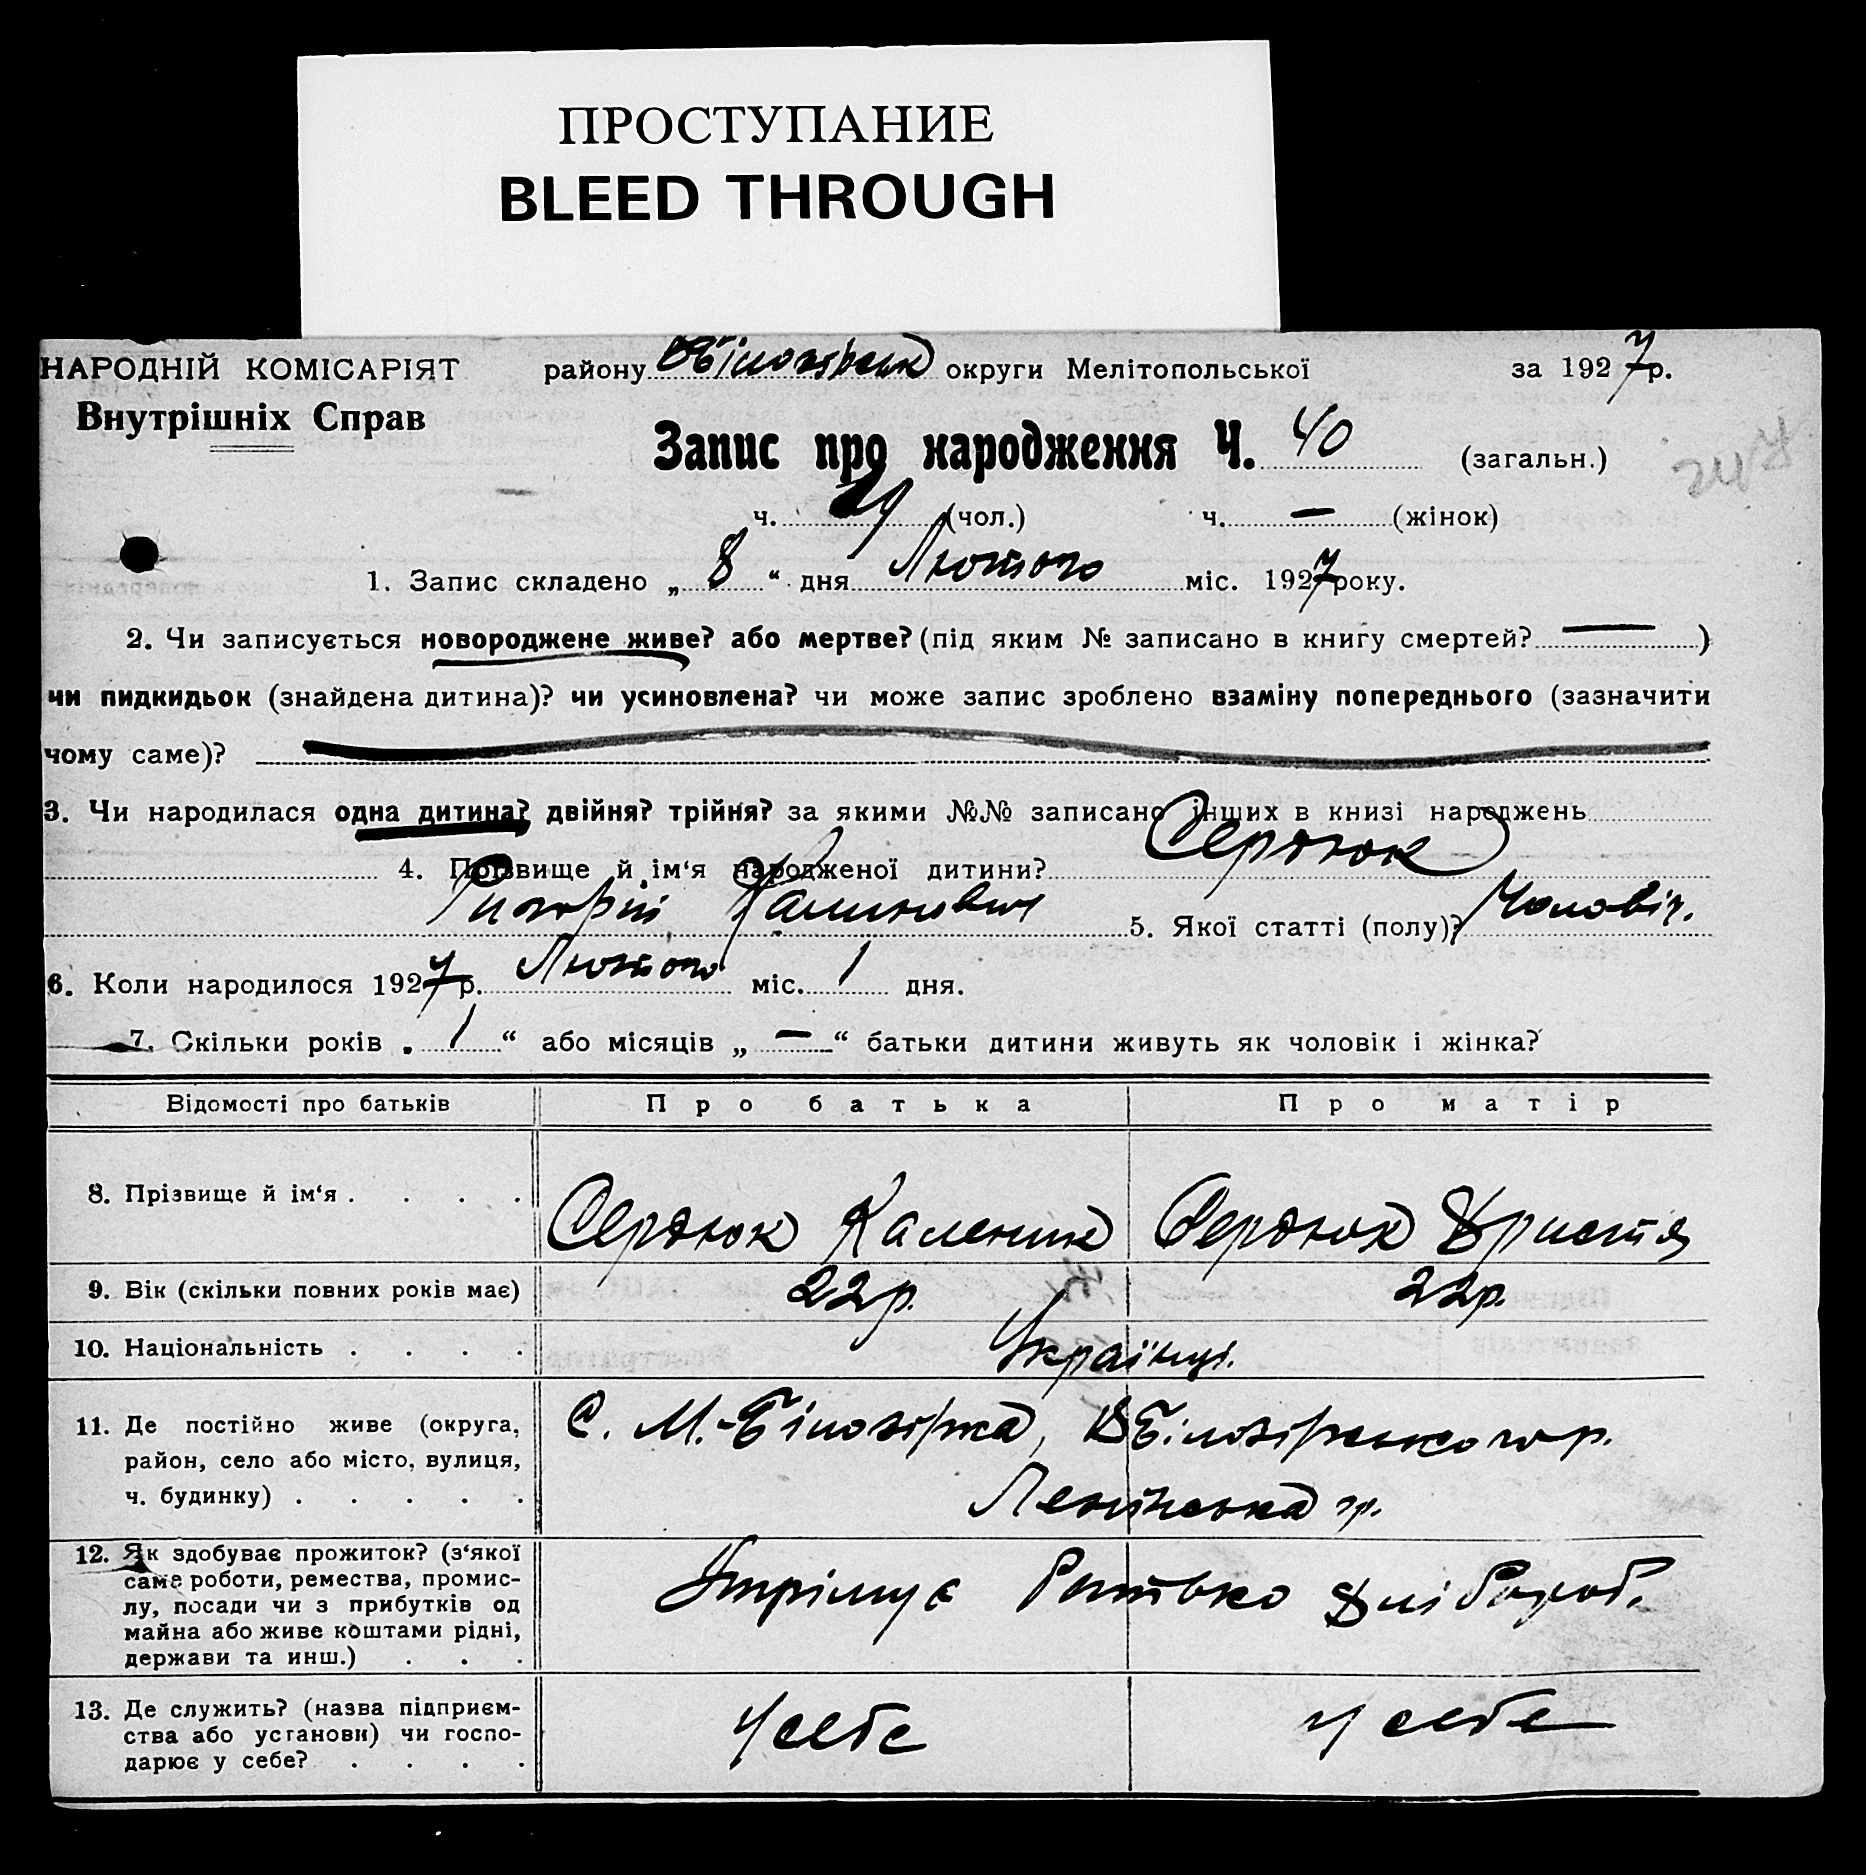 ПРОСТУПАНИЕ
BLEED THROUGH
НАРОДНІЙ КОМІСАРІЯТ району округи Мелітопольської за 1927р.
Внутрішніх Справ
Запис про народження Ч. 40 (загальн.)
ч. (чол.) ч. — (жінок)
1. Запис складено „ 8 “ дня Лютого міс. 1927 року.
2. Чи записується новороджене живе? або мертве? (під яким № записано в книгу смертей? — )
чи пидкидьок (знайдена дитина)? чи усиновлена? чи може запис зроблено взаміну попереднього (зазначити
чому саме)?
3. Чи народилася одна дитина? двійня? трійня? за якими №№ записано інших в книзі народжень
4. Прізвище й ім‘я народженої дитини? Сердюк
Калинкович 5. Якої статті (полу)? Чоловіч.
6. Коли народилося 1927р. Лютого міс. 1 дня.
7. Скільки років „ 1 “ або місяців „ — “ батьки дитини живуть як чоловік і жінка?
Відомості про батьків Про батька Про матір
8. Прізвище й ім‘я . . . . Сердюк Каленик Сердюк Христя
9. Вік (скільки повних років має) 22р. 22р.
10. Національність . . . . Українці.
11. Де постійно живе (округа, С. М.-Білозірка, В Білозірського р.
район, село або місто, вулиця,
ч. будинку) . . . . . Ленінська
12. Як здобуває прожиток? (з‘якої
саме роботи, ремества, промис-
лу, посади чи з прибутків од
майна або живе коштами рідні,
держави та инш.) . . .
13. Де служить? (назва підприєм- У себе У себе
ства або установи) чи госпо-
дарює у себе? . . . .